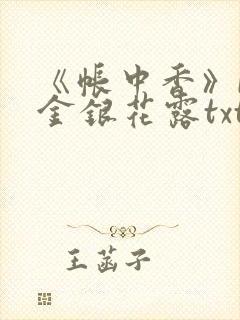 《帐中香》
金银花露txt
王菡子